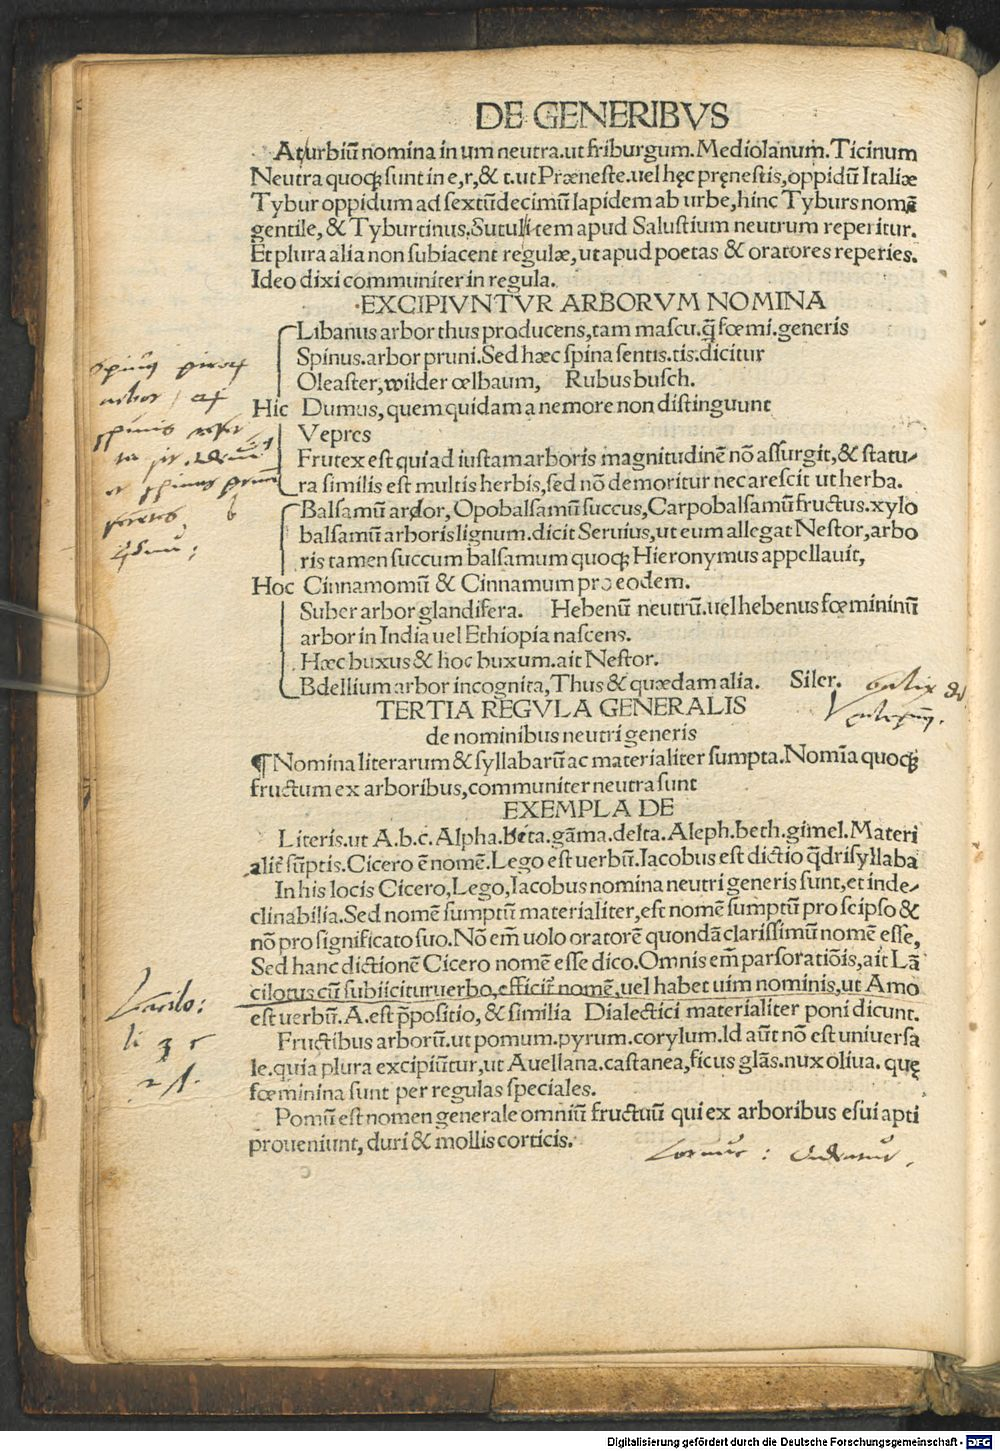 DE GENERIBVS
At urbiū nomina in um neutra. ut friburgum. Mediolanum. Ticinum
Neutra quoqꝫ sunt in e, r, & t. ut Præneste. uel hęc pręnestis, oppidū Italiæ
Tybur oppidum ad sextūdecimū lapidem ab urbe, hinc Tyburs nomē
gentile, & Tyburtinus. Sutul item apud Salustium neutrum reperitur.
Et plura alia non subiacent regulæ, ut apud poetas & oratores reperies.
Ideo dixi communiter in regula.
EXCIPIVNTVR ARBORVM NOMINA
Libanus arbor thus producens, tam mascu. q̄ fœmi. generis
Spinus. arbor pruni. Sed hæc spina sentis. tis. dicitur
Oleaster, wilder œlbaum, Rubus busch.
Hic Dumus, quem quidam a nemore non distinguunt
Vepres
Frutex est qui ad iustam arboris magnitudinē nō assurgit, & statu-
ra similis est multis herbis, sed nō demoritur nec arescit ut herba.
Balsamū arbor, Opobalsamū succus, Carpobalsamū fructus. xylo
balsamū arboris lignum. dicit Seruius, ut eum allegat Nestor, arbo
ris tamen succum balsamum quoqꝫ Hieronymus appellauit,
Hoc Cinnamomū & Cinnamum pro eodem.
Suber arbor glandifera. Hebenū neutrū. uel hebenus fœmininū
arbor in India uel Ethiopia nascens.
Hæc buxus & hoc buxum. ait Nestor.
Bdellium arbor incognita, Thus & quædam alia. Siler.
TERTIA REGVLA GENERALIS
de nominibus neutri generis
¶ Nomina literarum & syllabarū ac materialiter sumpta. Nomīa quoqꝫ
fructum ex arboribus, communiter neutra sunt
EXEMPLA DE
Literis. ut A. b. c. Alpha. beta. gāma. delta. Aleph. beth. gimel. Materi
aliť sūptis. Cicero ē nomē. Lego est uerbū. Iacobus est dictio q̄drisyllaba
In his locis Cicero, Lego, Iacobus nomina neutri generis sunt, et inde-
clinabilia. Sed nomē sumptū materialiter, est nomē sumptū pro seipso &
nō pro significato suo. Nō em̄ uolo oratorē quondā clarissimū nomē esse,
Sed hanc dictionē Cicero nomē esse dico. Omnis em̄ pars orationīs, ait Lā
cilotus cū subiicitur uerbo, efficiť nomē, uel habet uim nominis, ut Amo
est uerbū. A. est p̄positio, & similia Dialectici materialiter poni dicunt.
Fructibus arborū. ut pomum. pyrum. corylum. Id aūt nō est uniuersa
le. quia plura excipiūtur, ut Auellana. castanea, ficus glās. nux oliua. quę
fœminina sunt per regulas speciales.
Pomū est nomen generale omniū fructuū qui ex arboribus esui apti
proueniunt, duri & mollis corticis.